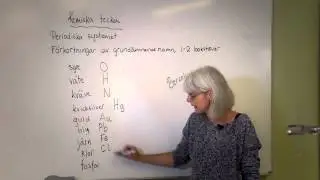 Kemiska tecken
Periodiska systemet
Förkortningar av grundämnenas namn, 1-2 bokstäver
syre O
väte H
kväve N
kvicksilver Hg
guld Au
bly Pb
järn Fe
klor Cl
fosfor